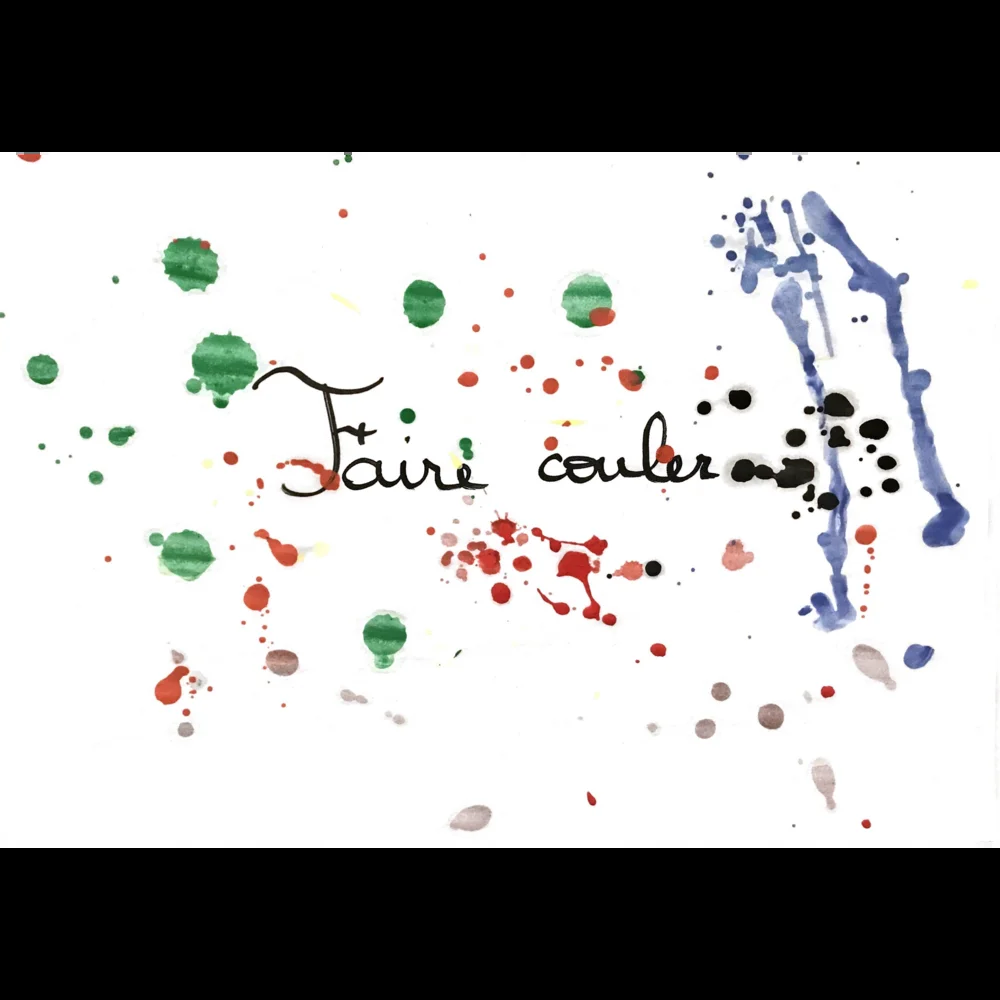 Faire couler